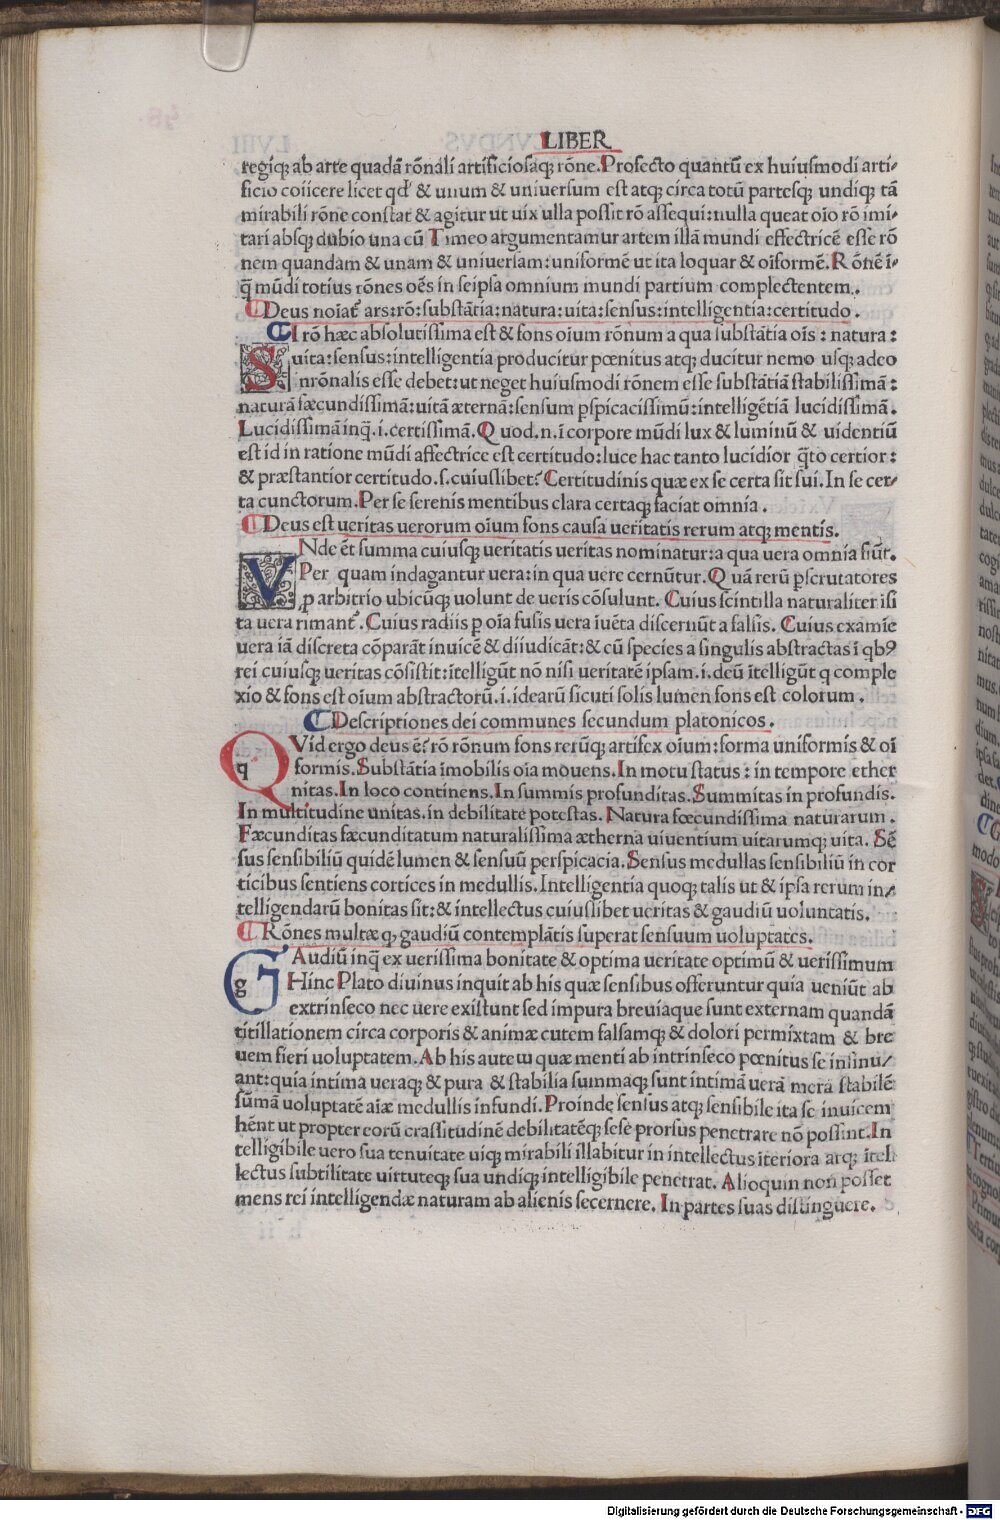 LIBER
regiq; ab arte quadā rōnáli artificiosaq; rōne. Profecto quantū ex huiuſmodi arti⸗
ficio coiicere licet qđ & unum & uniuerſum eſt atq; circa totū parteſq; undiq; tā
mirabili rōne conſtat & agitur ut uix ulla poſſit rō aſſequi: nulla queat oīo rō imi⸗
tari abſq; dubio una cū Timeo argumentamur artem illā mundi effectricē eſſe rō
nem quandam & unam & uniuerſam: uniformē ut ita loquar & oīformē. Rōnē ī⸗
q̄ mūdi totius rōnes oēs in ſeipſa omnium mundi partium complectentem.
Deus noīat̄ ars: rō: ſubſtātia: natura: uita: ſenſus: intelligentia: certitudo.
SI rō hæc abſolutiſſima eſt & fons oium rōnum a qua ſubſtātia oīs: natura:
uita: ſenſus: intelligentia producitur pœnitus atq; ducitur nemo uſq; adeo
inrōnalis eſſe debet: ut neget huiuſmodi rōnem eſſe ſubſtātiā ſtabiliſſimā:
naturā fæcundiſſimā: uitā æternā: ſenſum pſpicaciſſimū: intelligētiā lucidiſſimā.
Lucidiſſimā inq̄. i. certiſſimā. Quod. n. ī corpore mūdi lux & luminū & uidentiū
eſt id in ratione mūdi affectrice eſt certitudo: luce hac tanto lucidior q̄to certior:
& præſtantior certitudo. ſ. cuiuſlibet? Certitudinis quæ ex ſe certa ſit ſui. In ſe cer⸗
ta cunctorum. Per ſe ſerenis mentibus clara certaq; faciat omnia.
Deus eſt ueritas uerorum oium fons cauſa ueritatis rerum atq; mentis.
VNde ēt ſumma cuiuſq; ueritatis ueritas nominatur: a qua uera omnia fiūt.
Per quam indagantur uera: in qua uere cernūtur. Quā rerū pſcrutatores
p arbitrio ubicūq; uolunt de ueris cōſulunt. Cuius ſcintilla naturaliter iſi
ta uera rimant̄. Cuius radiis p oīa fuſis uera iuēta diſcernūt a falſis. Cuius examīe
uera iā diſcreta cōparāt inuicē & diiudicāt: & cū ſpecies a ſingulis abſtractas ī qb9
rei cuiuſq; ueritas cōſiſtit: ītelligūt nō niſi ueritatē ipſam. i. deū ītelligūt q comple
xio & fons eſt oium abſtractorū. i. idearū ſicuti ſolis lumen fons eſt colorum.
Deſcriptiones dei communes ſecundum platonicos.
q
QVid ergo deus ē? rō rōnum fons rerūq; artifex oium: forma uniformis & oī
formis. Subſtātia īmobilis oīa mouens. In motu ſtatus: in tempore ether
nitas. In loco continens. In ſummis profunditas. Summitas in profundis.
In multitudine unitas. in debilitate poteſtas. Natura fœcundiſſima naturarum.
Fæcunditas fæcunditatum naturaliſſima ætherna uiuentium uitarumq; uita. Sē
ſus ſenſibiliū quidē lumen & ſenſuū perſpicacia. Senſus medullas ſenſibiliū in cor
ticibus ſentiens cortices in medullis. Intelligentia quoq; talis ut & ipſa rerum in⸗
telligendarū bonitas ſit: & intellectus cuiuſlibet ueritas & gaudiū uoluntatis.
Rōnes multæ q, gaudiū contemplātis ſuperat ſenſuum uoluptates.
g
GAudiū inq̄ ex ueriſſima bonitate & optima ueritate optimū & ueriſſimum
Hinc Plato diuinus inquit ab his quæ ſenſibus offeruntur quia ueniūt ab
extrinſeco nec uere exiſtunt ſed impura breuiaque ſunt externam quandā
titillationem circa corporis & animæ cutem falſamq; & dolori permixtam & bre
uem fieri uoluptatem. Ab his autem quæ menti ab intrinſeco pœnitus ſe inſinu⸗
ant: quia intima ueraq; & pura & ſtabilia ſummaq; ſunt intimā uerā merā ſtabilē
ſūmā uoluptatē aīæ medullis infundi. Proinde ſenſus atq; ſenſibile ita ſe inuicem
hēnt ut propter eorū craſſitudinē debilitatēq; ſeſe prorſus penetrare nō poſſint. In
telligibile uero ſua tenuitate uiq; mirabili illabitur in intellectus īteriora atq; ītel⸗
lectus ſubtilitate uirtuteq; ſua undiq; intelligibile penetrat. Alioquin non poſſet
mens rei intelligendæ naturam ab alienis ſecernere. In partes ſuas diſtinguere.
Digitalisierung gefördert durch die Deutsche Forschungsgemeinschaft - DFG